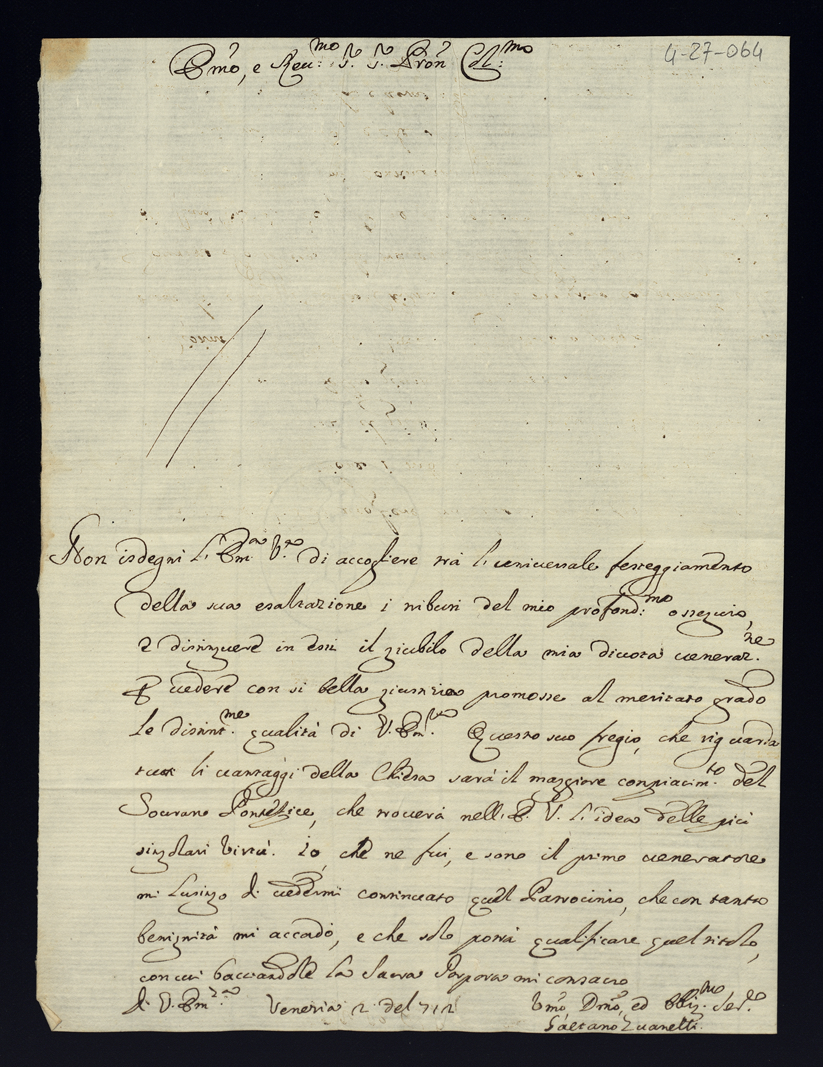 4-27-064
Em̃o, e Reu:mo Sr. Sr. Pron Col:mo
Non isdegni l'Em.a V.ra di accogliere trà l'universale festeggiamento
della sua esaltazione i tributi del mio profond:mo ossequio,
e distinguere in essi il giubilo della mia divota veneraz.ne
P vedere con si bella giustizia promosse al meritato grado
le distint.me qualità di V. Em.za Questo suo fregio, che riguarda
tutti li vantaggi della Chiesa sarà il maggiore compiacim.to del
Sovrano Pontefice, che troverà nell'E. V. l'idea delle più
singolari virtù. Io, che ne fui, e sono il primo veneratore
mi lusingo di vedermi continuato quel Patrocinio, che con tanta
benignità mi accordò, e che solo potrà qualificare quel titolo,
con cui bacciandole la Sacra Porpora mi consacro
di V. Em.za Venezia 2 del 712 Vmo, Dmo, ed Oblig.mo Ser.e
Gaetano Zuanelli.